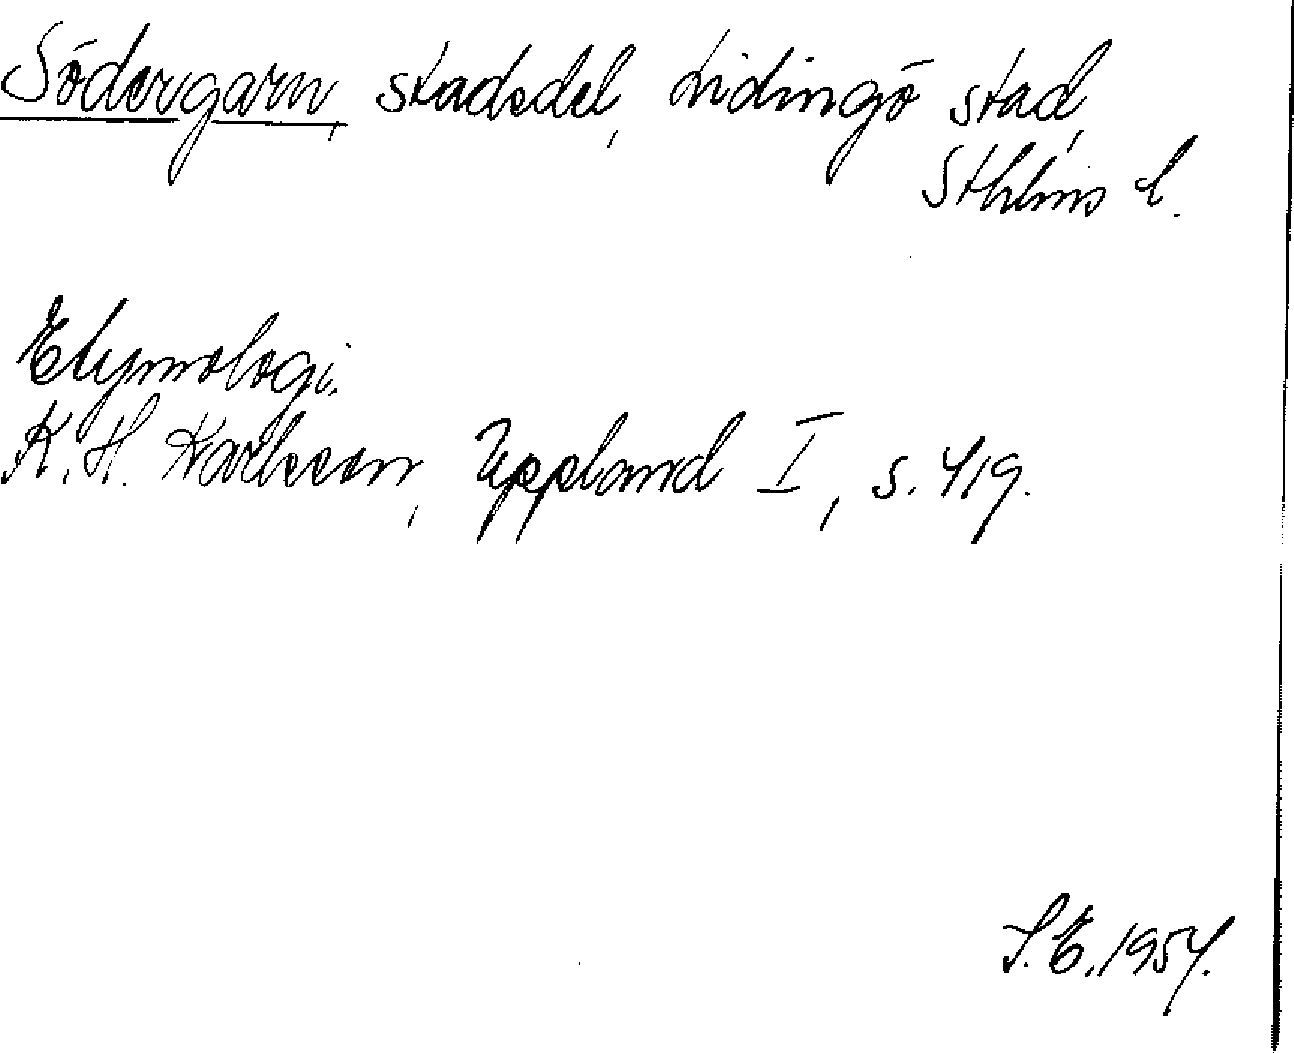 Södergarn, stadsdel, Lidingö stad,
Sthlms l.
Etymologi.
K. H. Karlsson, Uppland I, s. 419.
S. E. 1954.